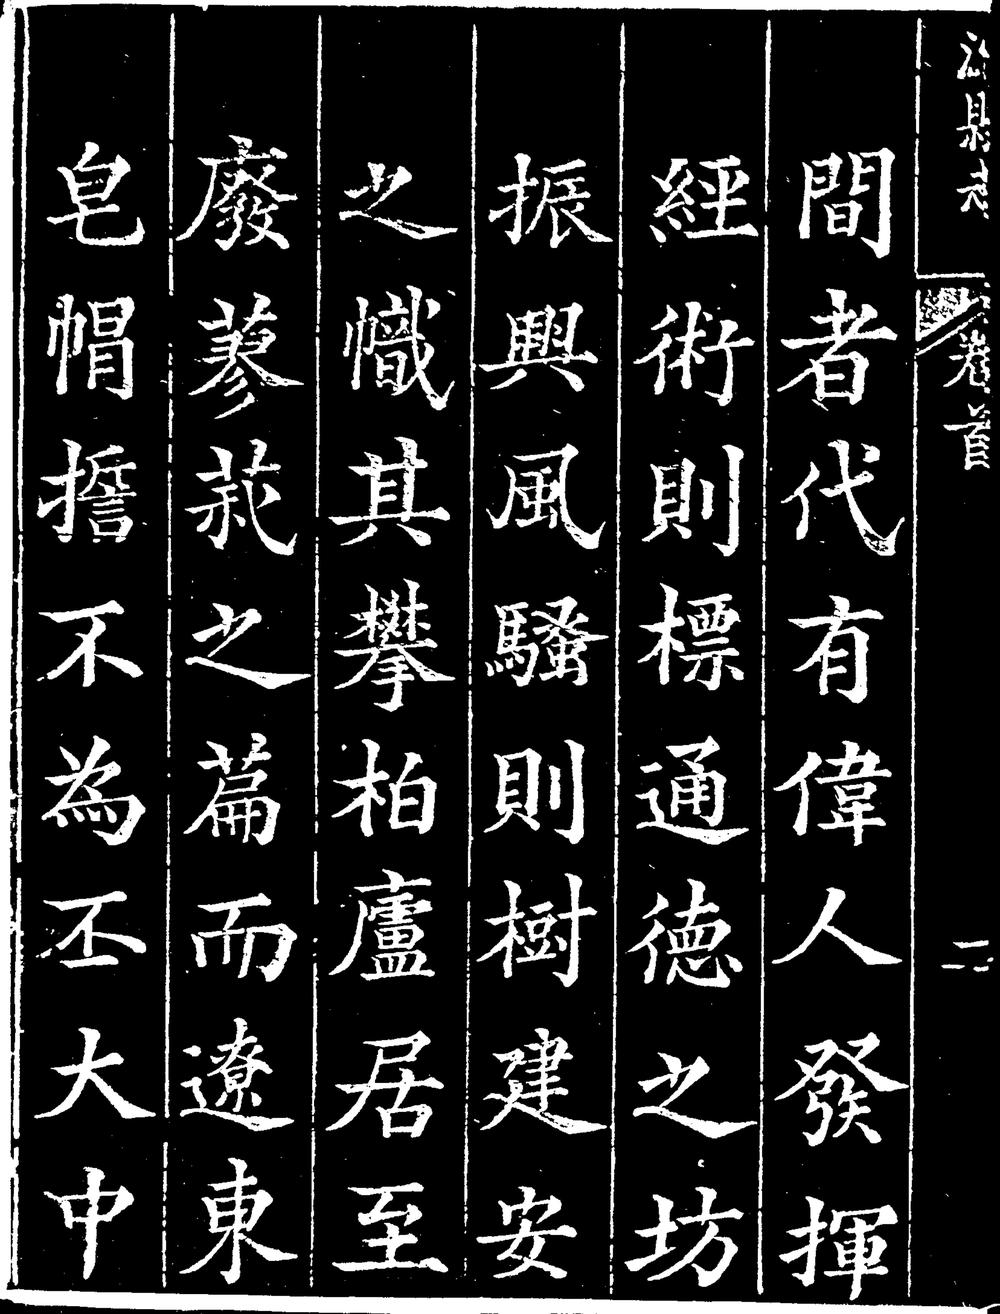 縣志 卷首 二
間者代有偉人發揮
經術則標通德之坊
振興風騷則樹建安
之幟其攀柏廬居至
廢蓼莪之篇而遼東
皂帽擔不為丕大中